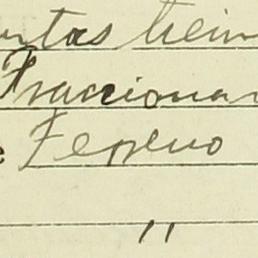 ntas trein
Fraccionar
e Terreno
"